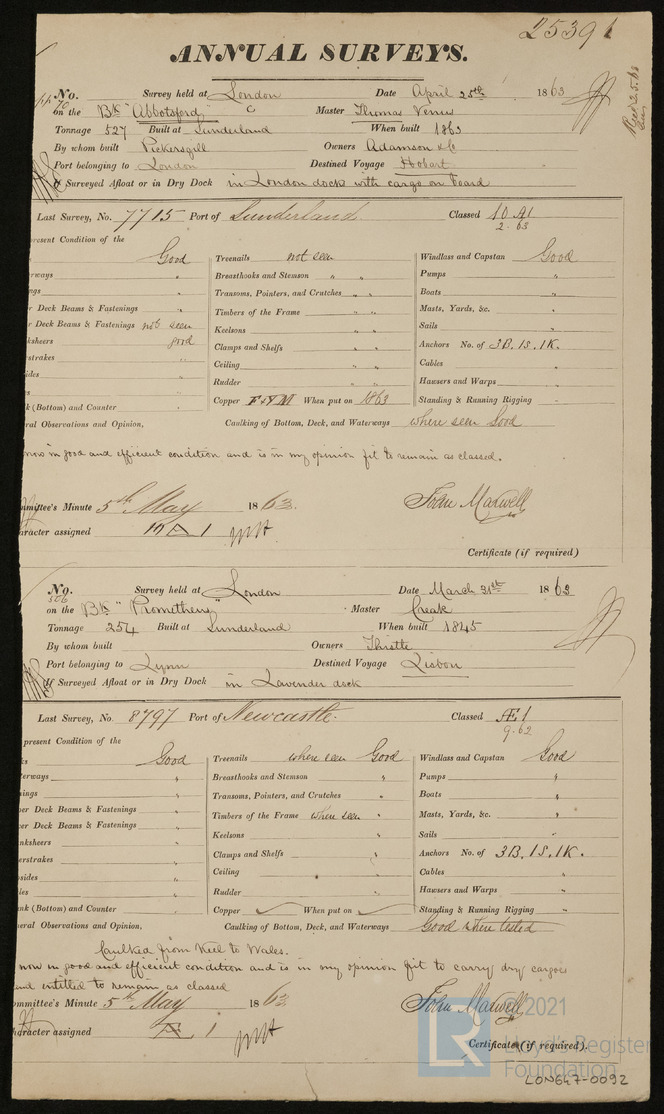 25391
ANNUAL SURVEYS.
No. 70 Survey held at London Date April 25th 1863
on the Bk "Abbotsford" Master Thomas
Tonnage 527 Built at Sunderland When built 1863
By whom built Pickersgill Owners Adamson & Co
Port belonging to London Destined Voyage Hobart
If Surveyed Afloat or in Dry Dock in London dock with cargo on board
Last Survey, No. 7715 Port of Sunderland Classed 10 A1
2.63
present Condition of the
Good Treenails not seen Windlass and Capstan Good
Breasthooks and Stemson " " Pumps "
Transoms, Pointers, and Crutches " " Boats "
Deck Beams & Fastenings " Timbers of the Frame " " Masts, Yards, &c. "
Deck Beams & Fastenings not seen Keelsons " " Sails "
good Clamps and Shelfs " " Anchors No. of 3B. 1S. 1K.
Ceiling " " Cables "
Rudder " " Hawsers and Warps "
(Bottom) and Counter " Copper F&YM When put on 1863 Standing & Running Rigging "
Observations and Opinion, Caulking of Bottom, Deck, and Waterways where seen Good
now in good and efficient condition and is in my opinion fit to remain as classed.
Committee's Minute 5th May 1863. John Maxwell
Character assigned 10 A 1
Certificate (if required)
No. 506 Survey held at London Date March 31st 1863
on the Bk "Prometheus" Master Creak
Tonnage 254 Built at Sunderland When built 1845
By whom built Owners Thistle
Port belonging to Lynn Destined Voyage Lisbon
If Surveyed Afloat or in Dry Dock in Lavender dock
Last Survey, No. 8797 Port of Newcastle. Classed Æ1
9.62
present Condition of the
Good Treenails where seen Good Windlass and Capstan Good
Breasthooks and Stemson " Pumps "
Transoms, Pointers, and Crutches " Boats "
Deck Beams & Fastenings " Timbers of the Frame where seen " Masts, Yards, &c. "
Deck Beams & Fastenings " Keelsons " Sails "
Clamps and Shelfs " Anchors No. of 3B. 1S. 1K.
Ceiling " Cables "
Rudder " Hawsers and Warps "
(Bottom) and Counter " Copper When put on Standing & Running Rigging "
Observations and Opinion, Caulking of Bottom, Deck, and Waterways Good where tested
Caulked from Keel to Wales.
now in good and efficient condition and is in my opinion fit to carry dry cargoes
and entitled to remain as classed
Committee's Minute 5th May 1863 John Maxwell
Character assigned Æ 1
Certificate (if required).
© 2021
Lloyd's Register
Foundation
LON647-0092